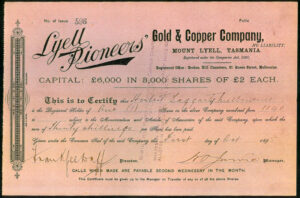 No. of Issue 596
Folio
Lyell
Pioneers'
Gold & Copper Company,
NO LIABILITY.
MOUNT LYELL, TASMANIA.
Registered under the Companies Act,
Registered Office: Broken Hill Chambers, 31 Queen Street, Melbourne
CAPITAL: £6,000 IN 3,000 SHARES OF £2 EACH.
This is to Certify that
is the Registered Holder of Shares in the above Company numbered from
to subject to the Memorandum and Articles of Association of the said Company, upon which the
sum of Thirty shillings per Share has been paid.
Given under the Common Seal of the said Company, the First day of 189
Director. Manager.
CALLS WHEN MADE ARE PAYABLE SECOND WEDNESDAY IN THE MONTH.
This Certificate must be given up to the Manager on Transfer of any or all of the above Shares.